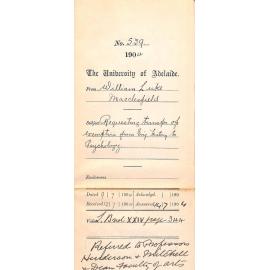 No. 539
1904
The University of Adelaide.
From William Luke
Macclesfield
Requesting transfer of
exemption from Eng. History to
Psychology
Enclosures
Dated 9/7/1904 Acknowd. / 190
Received 12/7/1904 Answered 14/7/1904
Vide L. Book XXIV page 344
Referred to Professors
Henderson & Mitchell
& Dean Faculty of Arts